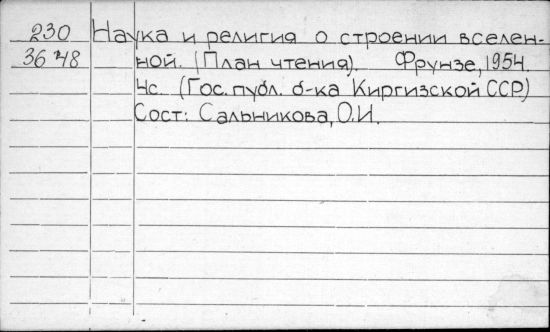 230 Наука и религия о строении вселен-
36 48 ной. (План чтения). Фрунзе, 1954
4с. (Гос. публ. б-ка Киргизской ССР)
Сост: Сальникова, О.И.